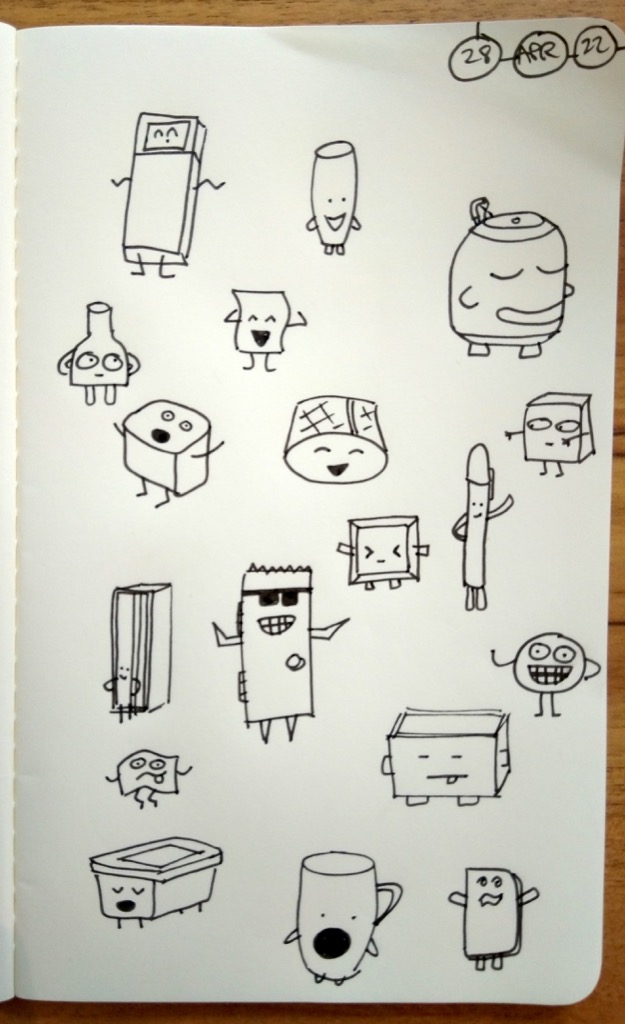 28 APR 22